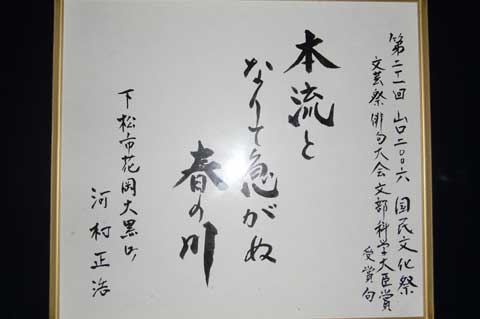 第二十一回 山口二〇〇六 国民文化祭
文芸祭俳句大会文部科学大臣賞
受賞句
本流と
なりて急がぬ
春の川
下松市花岡大黒町
河村正浩